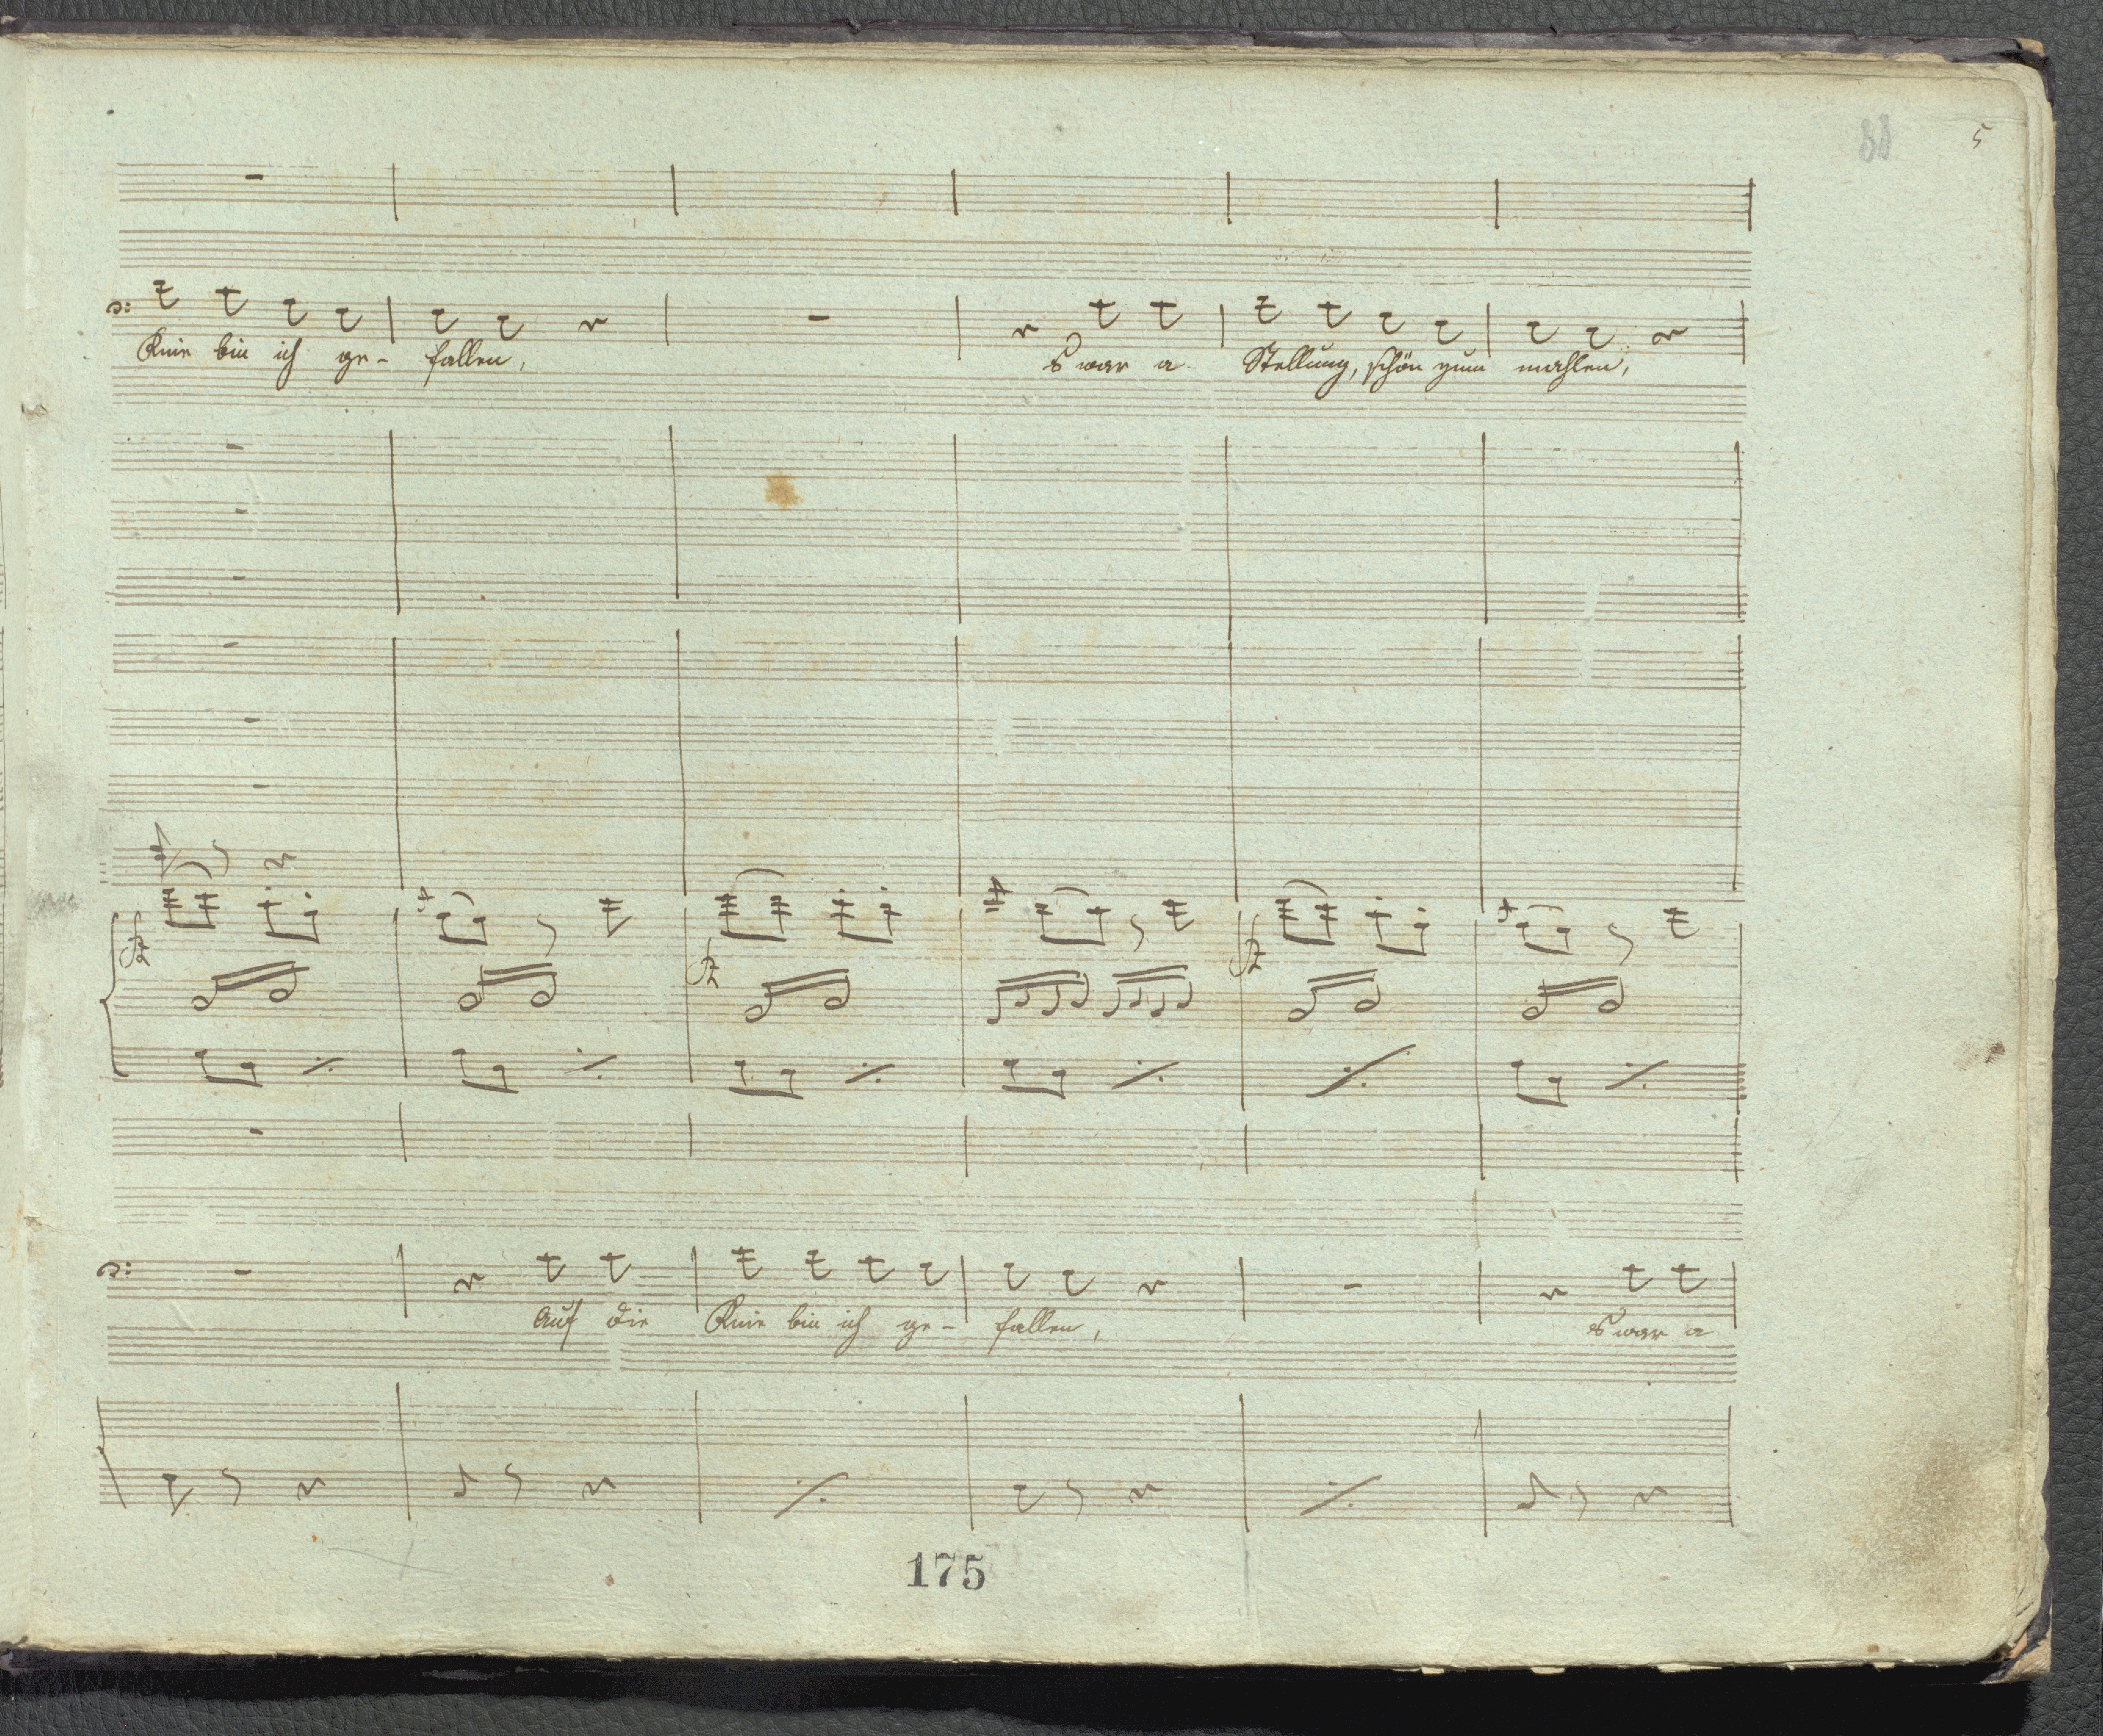 88 5
Knie bin ich ge- fallen, s war a Stellung, schön zum mahlen,
Auf die Knie bin ich ge- fallen, s war a
175